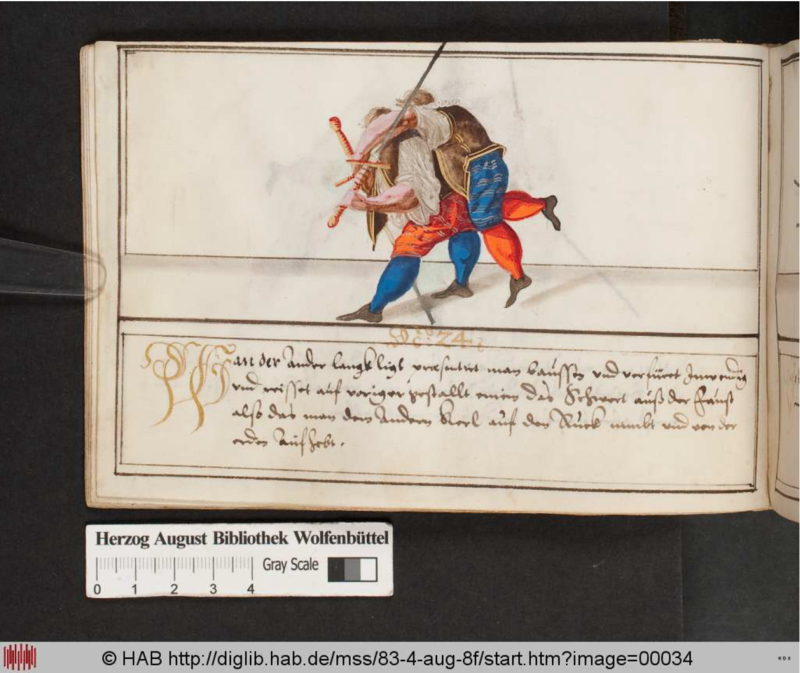 24
Wan der Ander langk ligt præsentirt man daussen und verfüret Inwendig
und reisset auf voriger gestallt einen das Schwert auß der Faust
also das man den Andern Kerl auf den Ruck nimbt und von der
erden Aufhebt.
Herzog August Bibliothek Wolfenbüttel
Gray Scale
0 1 2 3 4
© HAB http://diglib.hab.de/mss/83-4-aug-8f/start.htm?image=00034